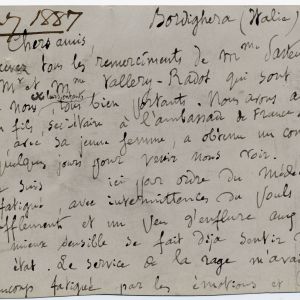 1887
Bordighera (Italie)
Chers amis,
tous les remerciments de Mme Pasteur
M et Mme Vallery-Radot qui sont
nous, tous bien portants. Nous avons
fils, secrétaire à l'ambassade de France
avec sa jeune femme, a obtenu un
quelques jours pour venir nous voir.
suis ici par ordre du
fatigué, avec intermittences du pouls
et un peu d'enflure
mieux sensible se fait déjà sentir
état. Le service de la rage m'avait
fatigué par les émotions et